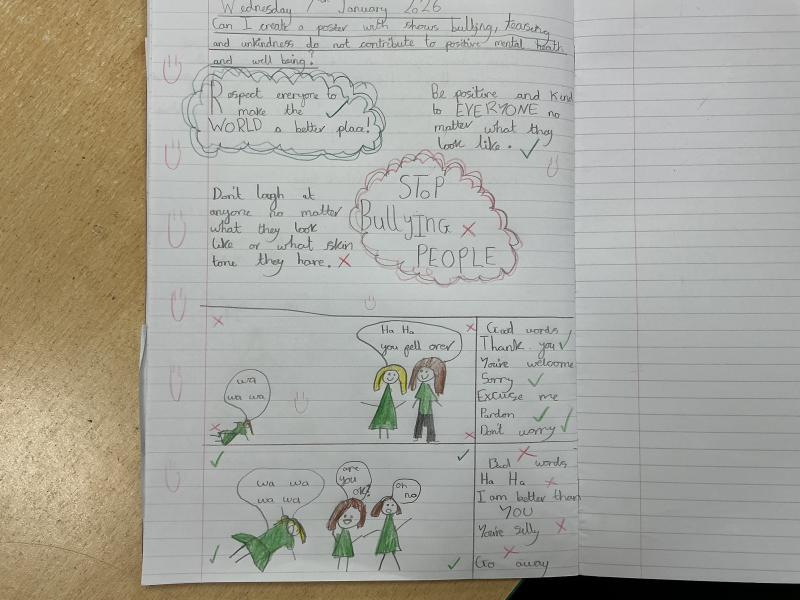 Wednesday 7th January 2026
Can I create a poster with shows bullying, teaseing
and unkindness do not contribute to positive mental heath
and well being?
Rospect everyone to
make the
WORLD a better place!
Be positive and kind
to EVERYONE no
matter what they
look like.
Don't laugh at
anyone no matter
what they look
like or what skin
tone they have.
STOP
BullyING
PEOPLE
Ha Ha
you fell over
wa
wa wa
Good words
Thank you
You're welcome
Sorry
Excuse me
Pardon
Don't worry
wa wa
wa wa
are
you
ok?
oh
no
Bad words
Ha Ha
I am better than
YOU
You're silly
Go away